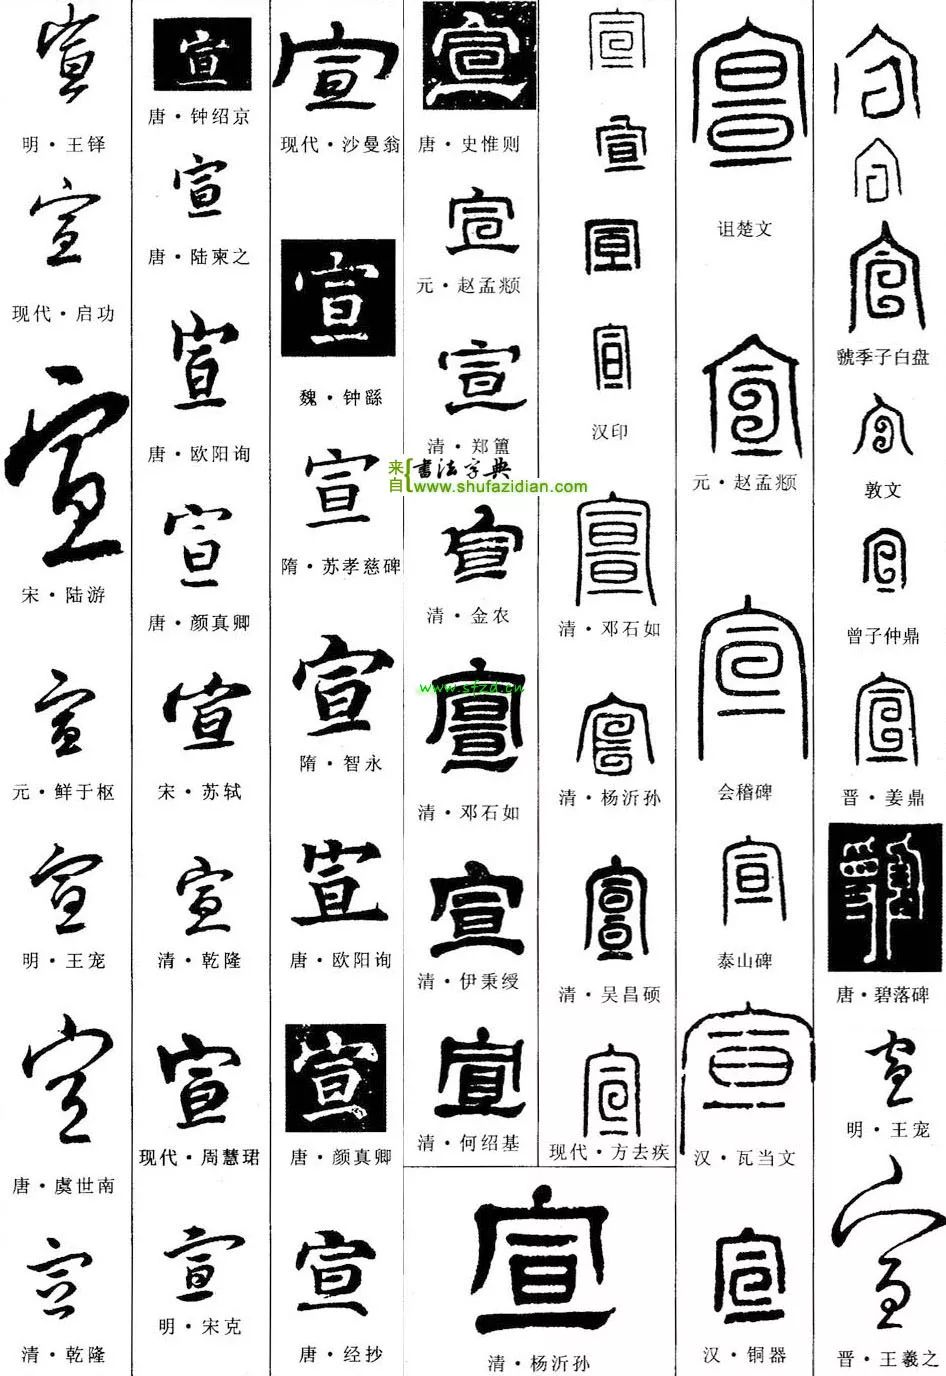 宣
明·王铎
宣
现代·启功
宣
宋·陆游
宣
元·鲜于枢
宣
明·王宠
宣
唐·虞世南
宣
清·乾隆
宣
唐·钟绍京
宣
唐·陆柬之
宣
唐·欧阳询
宣
唐·颜真卿
宣
宋·苏轼
宣
清·乾隆
宣
现代·周慧珺
宣
明·宋克
宣
现代·沙曼翁
宣
魏·钟繇
宣
隋·苏孝慈碑
宣
隋·智永
宣
唐·欧阳询
宣
唐·颜真卿
宣
唐·经抄
宣
唐·史惟则
宣
元·赵孟頫
宣
清·郑簠
来自
書法字典
www.shufazidian.com
宣
清·金农
www.sfzd.cn
宣
清·邓石如
宣
清·伊秉绶
宣
清·何绍基
宣
清·杨沂孙
宣
宣
宣
宣
汉印
宣
清·邓石如
宣
清·杨沂孙
宣
清·吴昌硕
宣
现代·方去疾
宣
诅楚文
宣
元·赵孟頫
宣
会稽碑
宣
泰山碑
宣
汉·瓦当文
宣
汉·铜器
宣
宣
宣
虢季子白盘
宣
敦文
宣
曾子仲鼎
宣
晋·姜鼎
唐·碧落碑
宣
明·王宠
宣
晋·王羲之